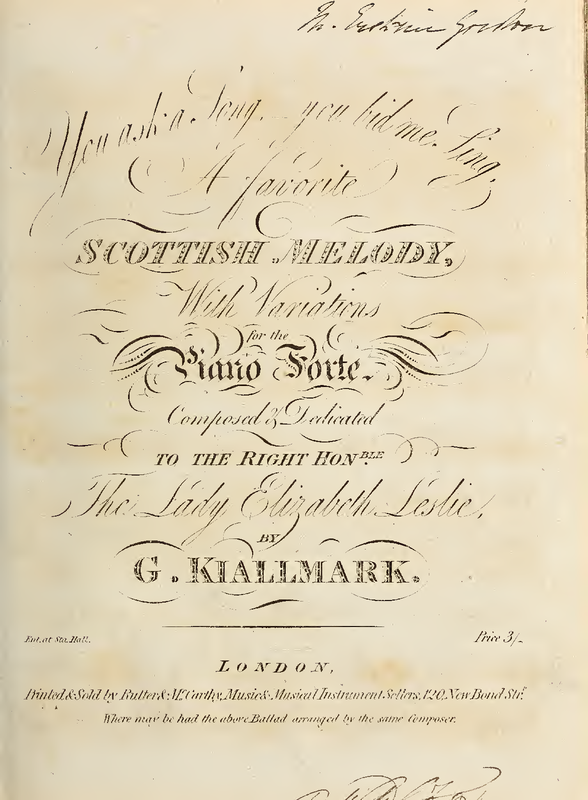 You ask a Song, you bid me Sing,
A favorite
SCOTTISH MELODY,
With Variations
for the
Piano Forte.
Composed & Dedicated
TO THE RIGHT HONBLE.
The Lady Elizabeth Leslie,
BY
G. KIALLMARK.
Ent. at Sta. Hall. Price 3/-
LONDON,
Printed & Sold by Rutter & Mc.Carthy, Music & Musical Instrument Sellers, 120, New Bond Strt.
Where may be had the above Ballad arranged by the same Composer.